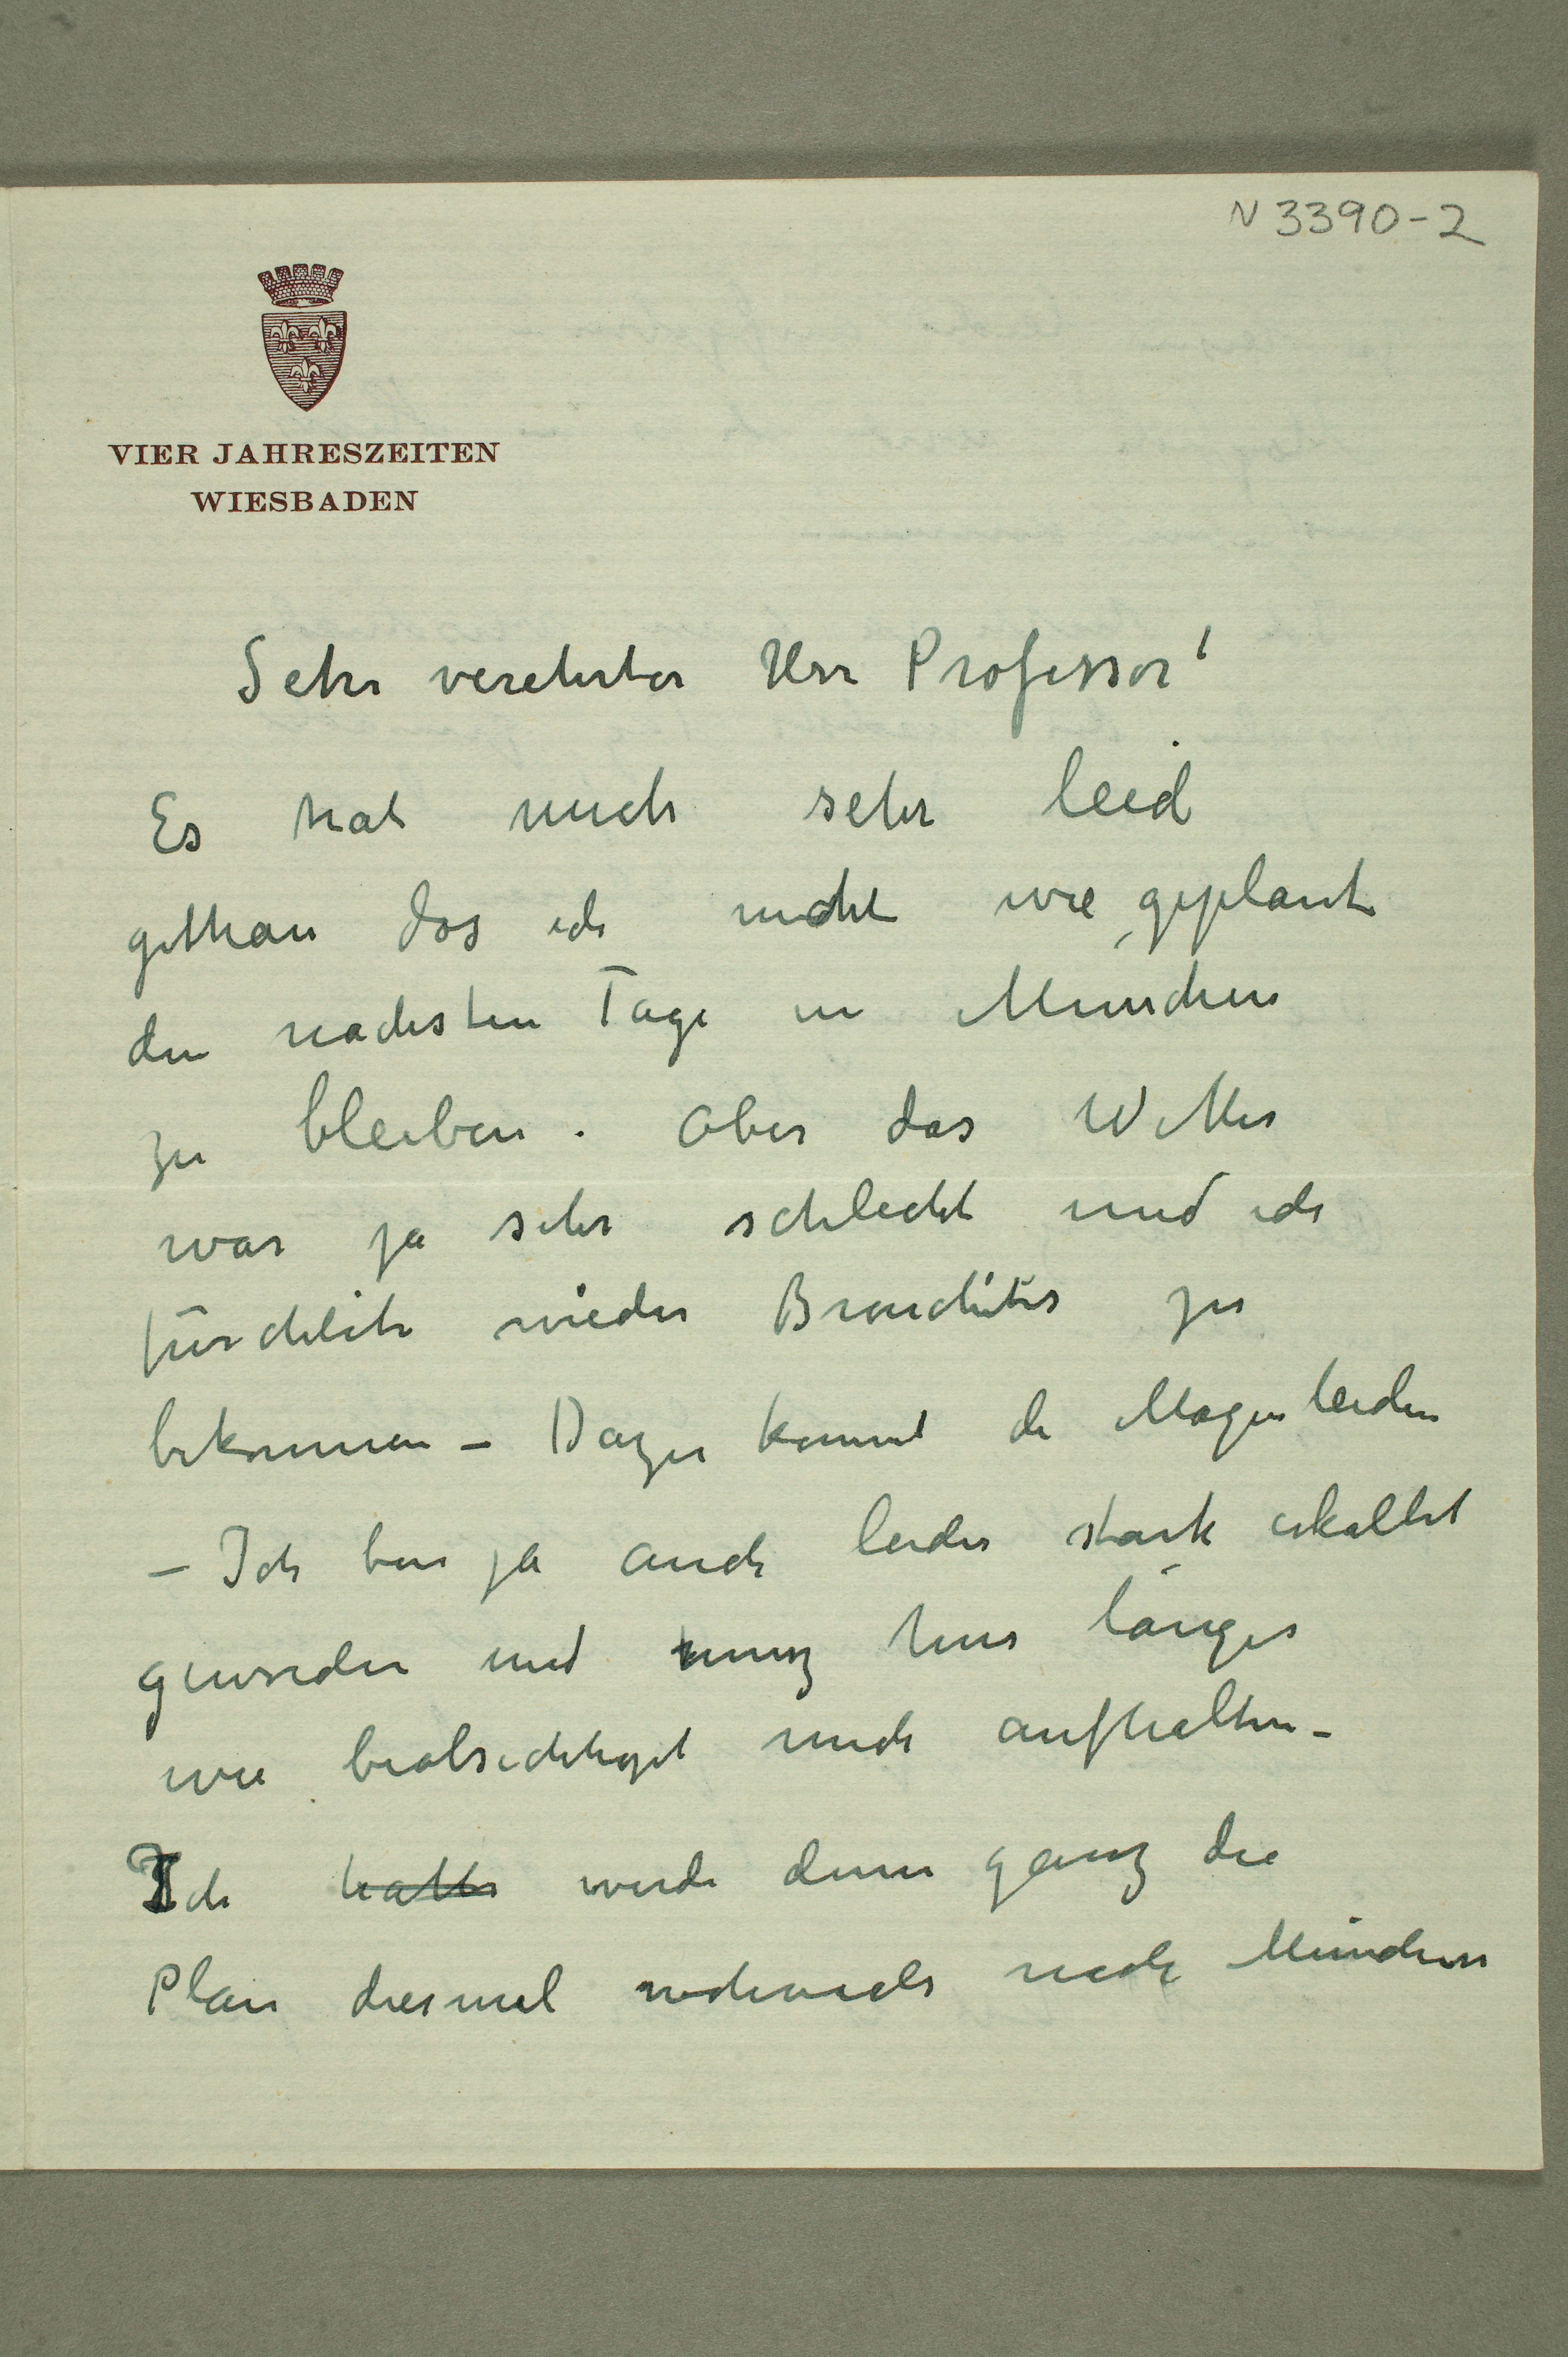 N 3390-2
VIER JAHRESZEITEN
WIESBADEN
Sehr verehrter Herr Professor!
Es hat mich sehr leid
gethan das ich nicht wie geplant
den nächsten Tage in München
zu bleiben. Aber das Wetter
war ja sehr schlecht und ich
fürchtete wieder Bronchitis zu
bekommen – Dazu kommt de Magenleiden
– Ich bin ja auch leider stark erkältet
geworden und musz hier länger
wie beabsichtiget mich aufhalten –
Ich hatte werde denn ganz die
Plan diesmal nach München